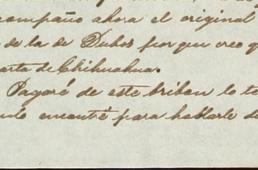 compaño ahora el original
de la de Dubos porque creo q
arta de Chihuahua.
Pagaré de este briban lo te
encontré para hablarle de